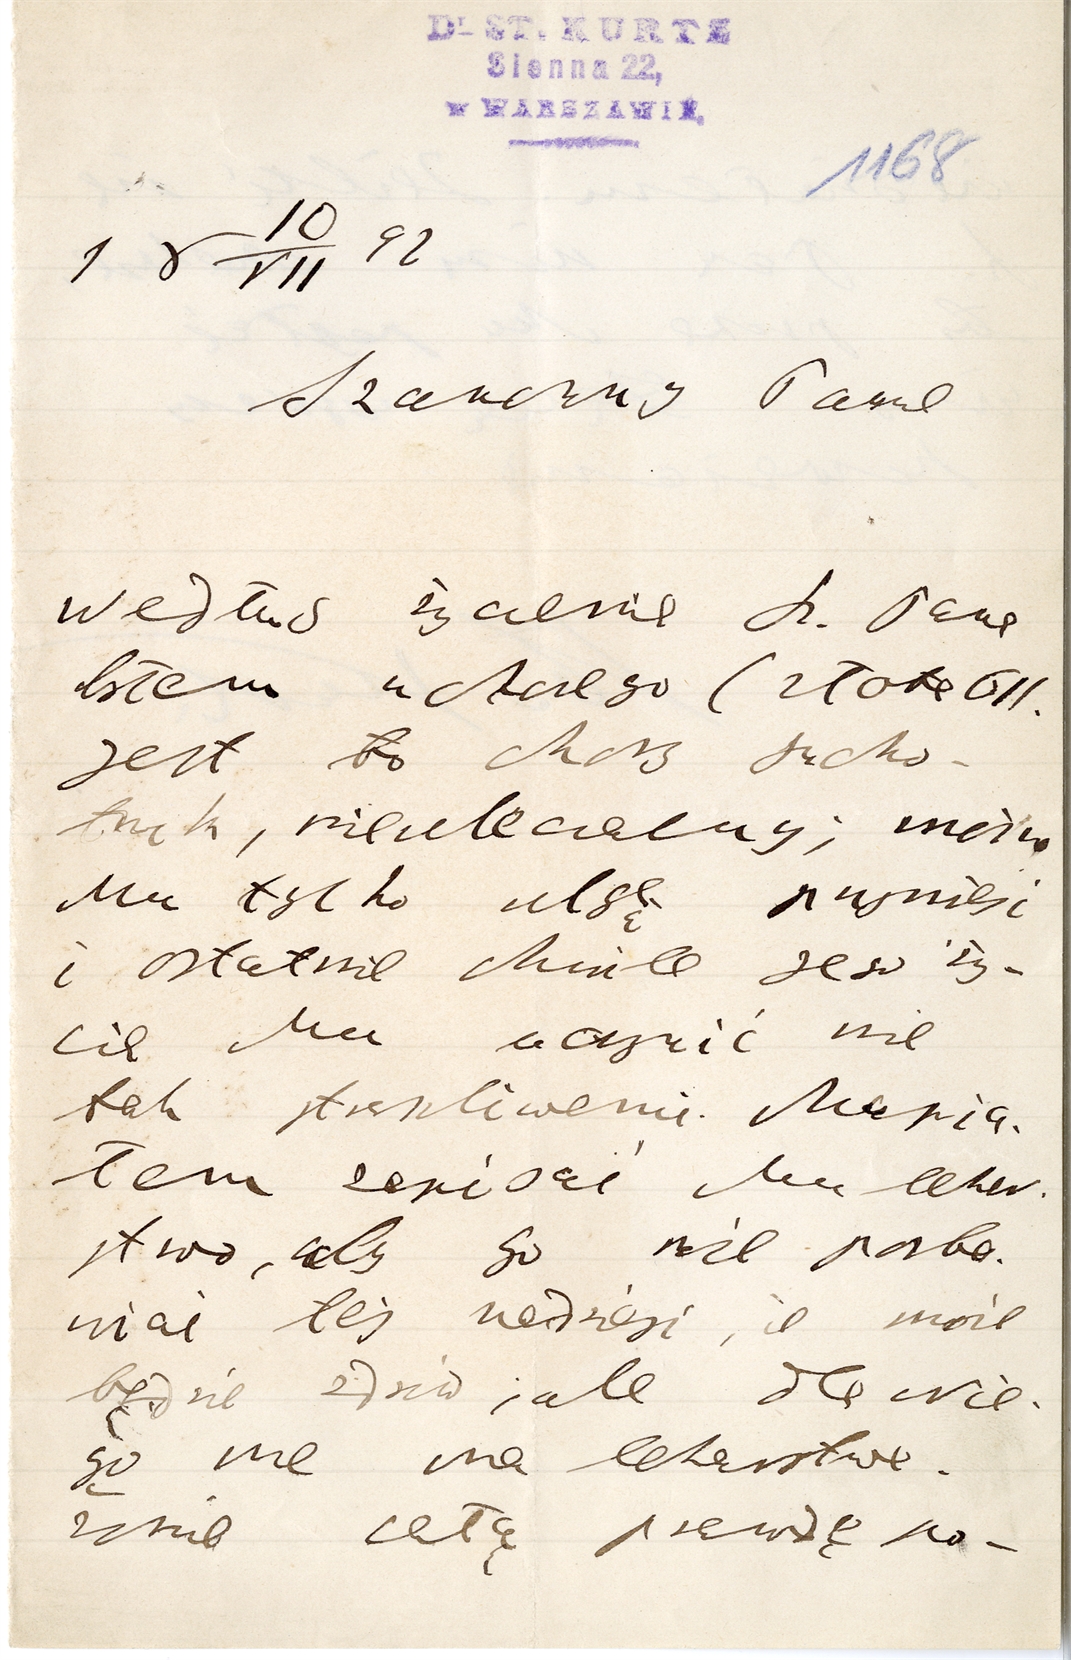 Dr ST. KURTZ
Sienna 22,
w WARSZAWIE.
1168
10
VII 92
Szanowny Panie
według życzenia Sz. Pana
byłem u chorego (Złota 6
jest to chory sucho-
tnik, nieuleczalny; można
Mu tylko ulgę przynieść
i ostatnie chwile jego ży-
cia Mu uczynić nie
tak straszliwemi. Musia-
łem zapisać Mu lekar-
stwo, aby go nie pozba-
wiać tej nadziei, że może
będzie zdrów, ale dla nie-
go nie ma lekarstwa.
żonie całą prawdę po-